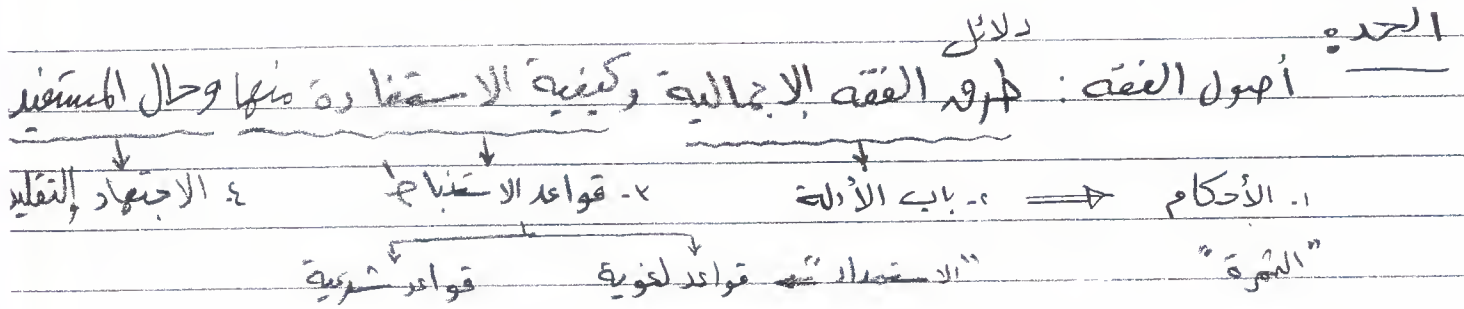 الحد:
دلائل
أصول الفقه: طرق الفقه الإجمالية وكيفية الاستفادة منها وحال المستفيد
١. الأحكام ⇐ ٢. باب الأدلة ٣. قواعد الاستنباط ٤. الاجتهاد والتقليد
"الثمرة" "الاستمداد" قواعد لغوية قواعد شرعية